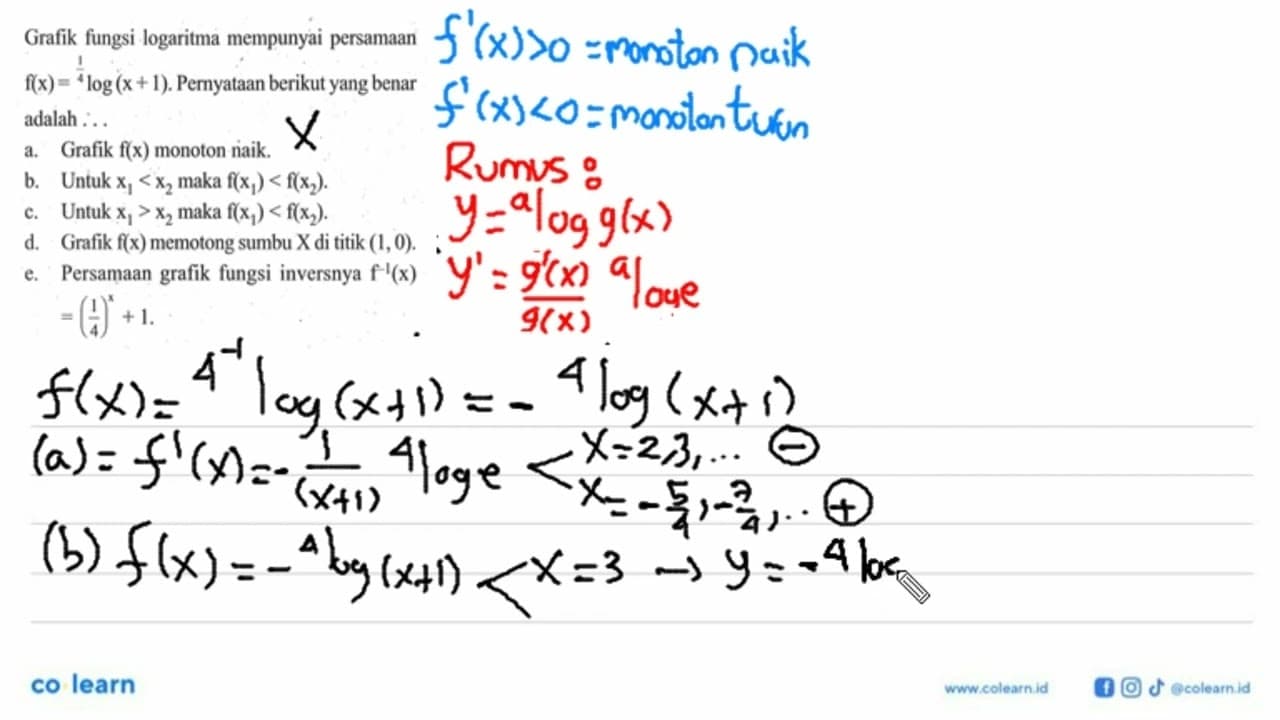 Grafik fungsi logaritma mempunyai persamaan
f(x) = ¹⁄⁴log (x + 1). Pernyataan berikut yang benar
adalah . . .
a. Grafik f(x) monoton naik. X
b. Untuk x₁ < x₂ maka f(x₁) < f(x₂).
c. Untuk x₁ > x₂ maka f(x₁) < f(x₂).
d. Grafik f(x) memotong sumbu X di titik (1, 0).
e. Persamaan grafik fungsi inversnya f⁻¹(x)
= (1/4)ˣ + 1.
f'(x)>0 = monoton naik
f'(x)<0 = monoton turun
Rumus :
y = ᵃlog g(x)
y' = g'(x)/g(x) ᵃloge
f(x) = 4⁻¹log(x+1) = - ⁴log(x+1)
(a) = f'(x) = - 1/(x+1) ⁴loge < x = 2,3,... ⊖
x = -5/4, -7/4, ... ⊕
(b) f(x) = - ⁴log(x+1) < x = 3 → y = - ⁴log
co learn
www.colearn.id
@colearn.id